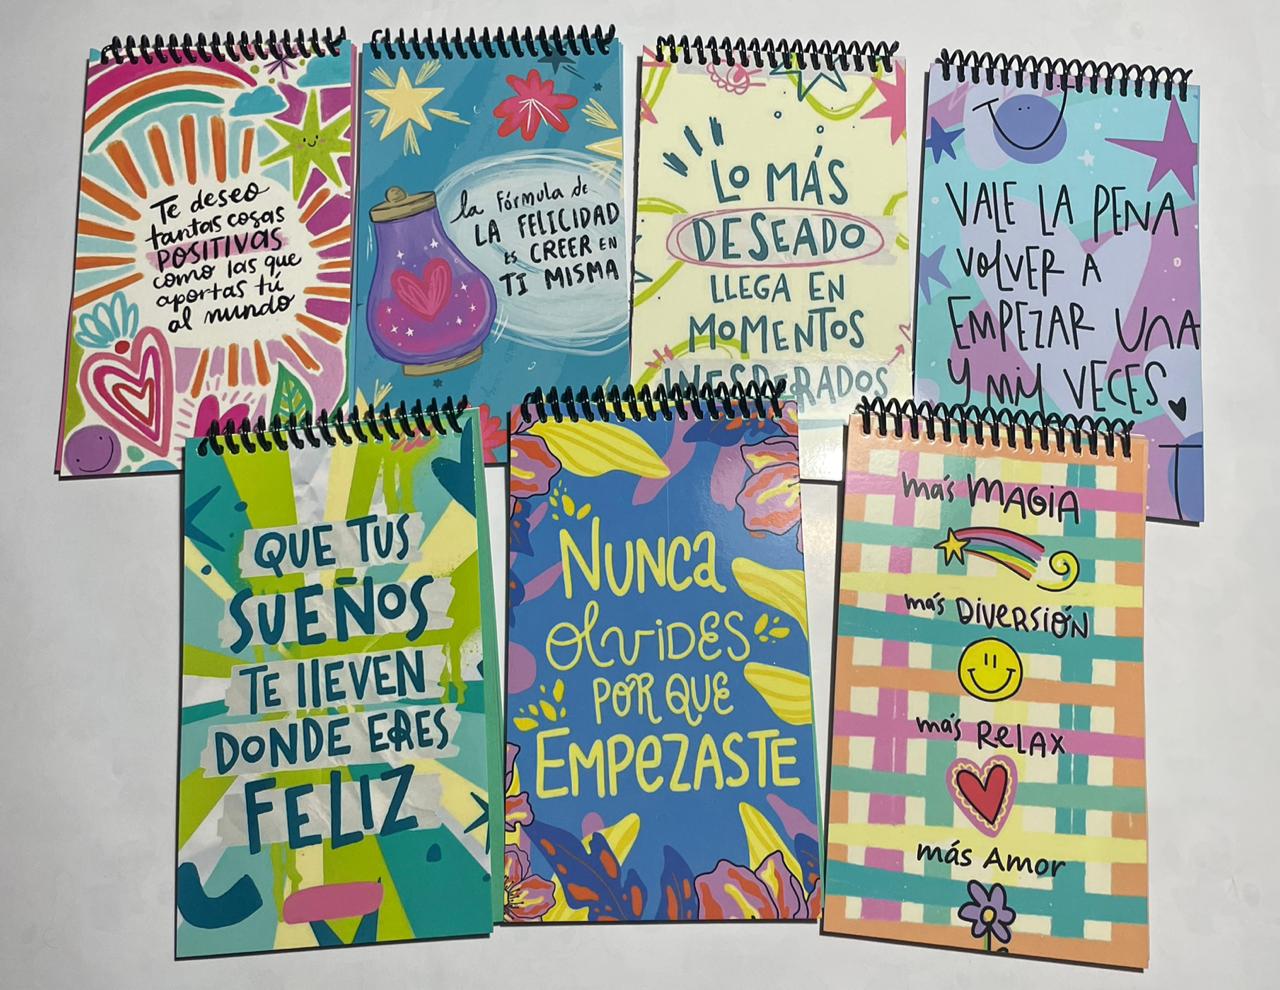 Te deseo
tantas cosas
POSITIVAS
como las que
aportas tú
al mundo
la fórmula de
LA FELICIDAD
ES CREER EN
TI MISMA
LO MÁS
DESEADO
LLEGA EN
MOMENTOS
INESPERADOS
VALE LA PENA
VOLVER A
EMPEZAR UNA
Y MIL VECES
QUE TUS
SUEÑOS
TE LLEVEN
DONDE ERES
FELIZ
NUNCA
OLVIDES
POR QUE
EMPEZASTE
más MAGIA
más DIVERSIÓN
más RELAX
más Amor